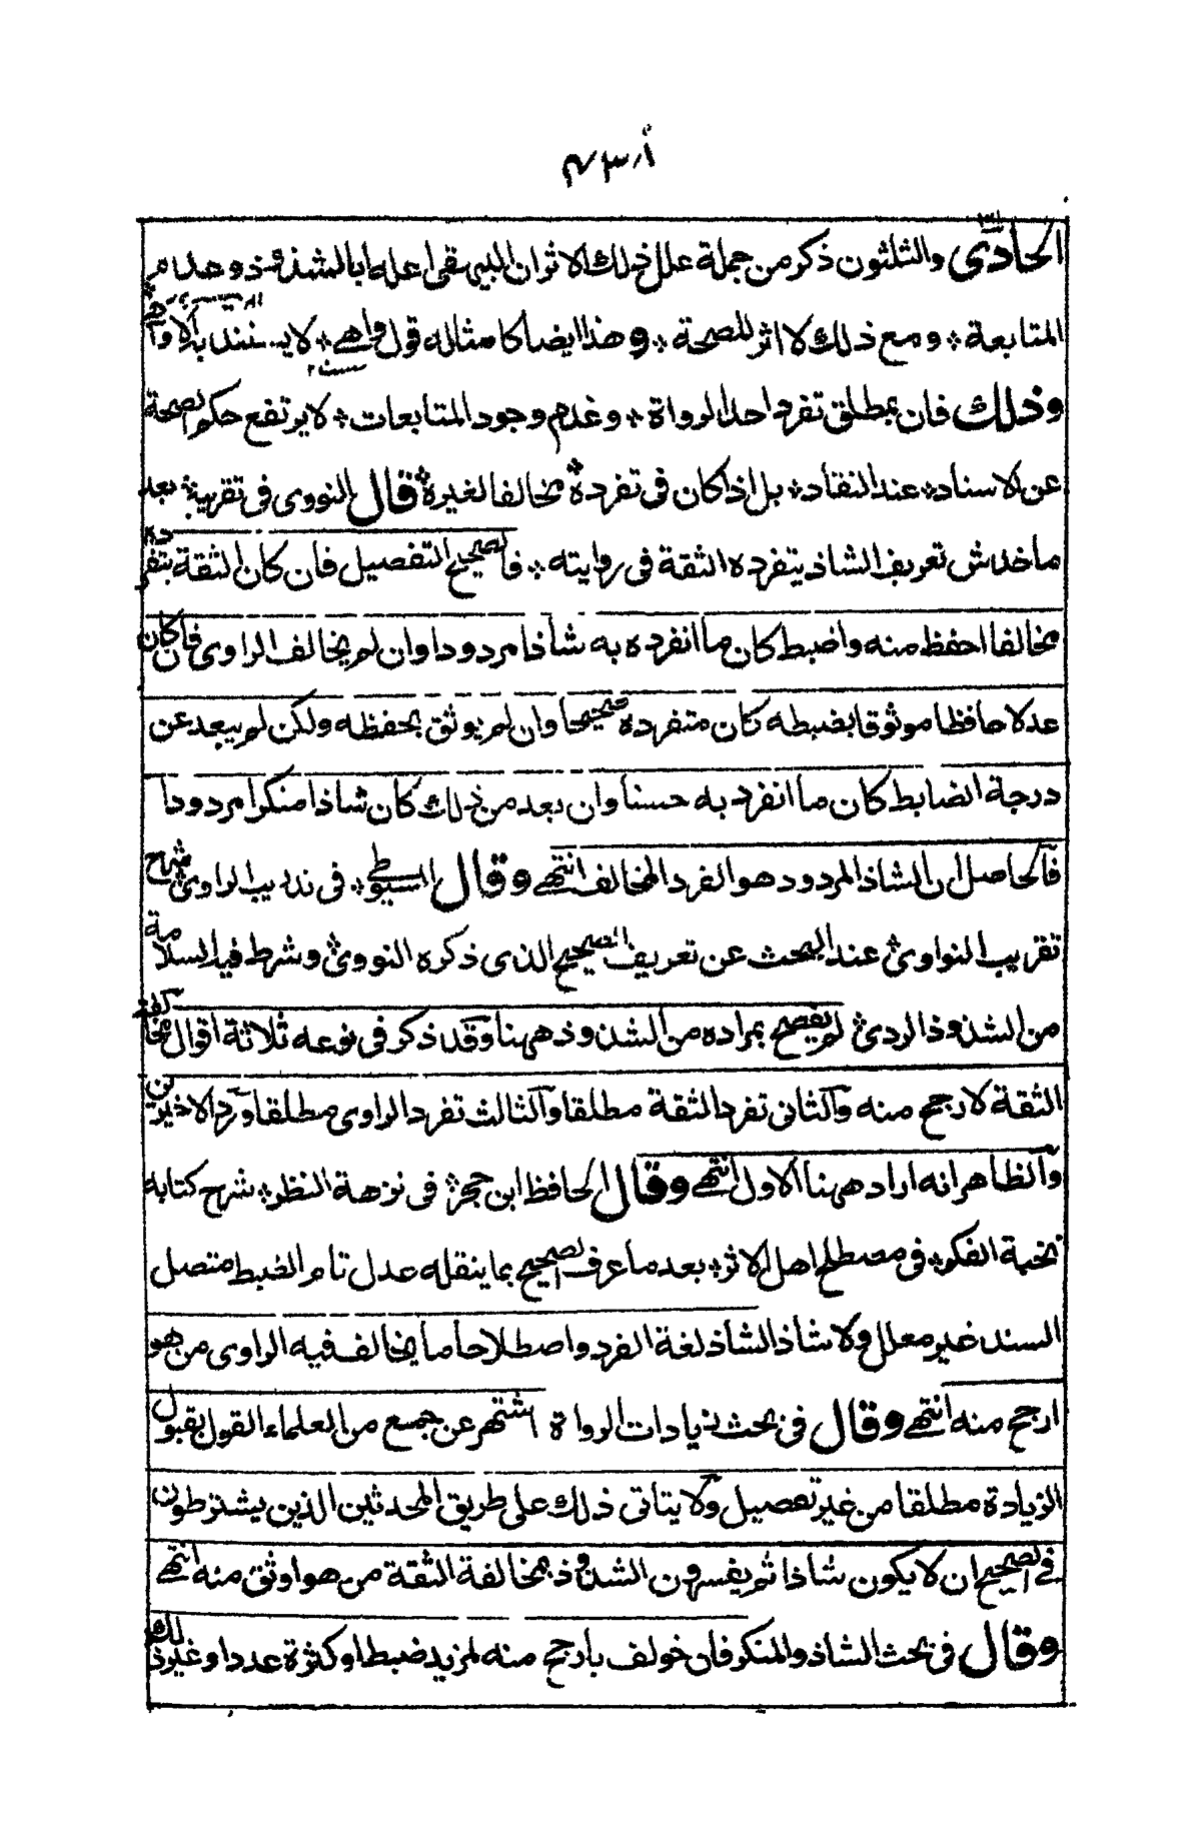 الحادى والثلثون ذكر من جملة علل ذلك الاثران البيهقى اعله ابالشذوذ وعدم
المتابعة ومع ذلك لا اثر للصحة وهذا ايضا كامثاله قول واهى لا يستند به الاواه
وذلك فان بمطلق تفرد احد الرواة وعدم وجود المتابعات لا يرتفع حكم الصحة
عن الاسناد عند النقاد بل اذا كان فى تفرده مخالفا لغيره قال النووى فى تقريبه بعد
ما خدش تعريف الشاذ بتفرده الثقة فى روايته فالصحيح التفصيل فان كان الثقة بتفرده
مخالفا احفظ منه واضبط كان ما انفرد به شاذا مردودا وان لم يخالف الراوى فان كان
عدلا حافظا موثوقا بضبطه كان متفرده صحيحا وان لم يوثق بحفظه ولكن لم يبعد عن
درجة الضابط كان ما انفرد به حسنا وان بعد من ذلك كان شاذا منكرا مردودا
فالحاصل ان الشاذ المردود هو الفرد المخالف انتهى وقال السيوطى فى تدريب الراوى شرح
تقريب النواوى عند البحث عن تعريف الصحيح الذى ذكره النووى وشرط فيه السلامة
من الشذوذ الردى لم يفصح بمراده من الشذوذ ههنا وقد ذكر فى نوعه ثلاثة اقوال مخالفة
الثقة لارجح منه والثانى تفرد الثقة مطلقا والثالث تفرد الراوى مطلقا ورد الاخيرين
والظاهر انه اراد ههنا الاول انتهى وقال الحافظ ابن حجر فى نزهة النظر شرح كتابه
نخبة الفكر فى مصطلح اهل الاثر بعد ما عرف الصحيح بما ينقله عدل تام الضبط متصل
السند غير معلل ولا شاذ الشاذ لغة الفرد واصطلاحا ما يخالف فيه الراوى من هو
ارجح منه انتهى وقال فى بحث زيادات الرواة اشتهر عن جمع من العلماء القول بقبول
الزيادة مطلقا من غير تفصيل ولا يتاتى ذلك على طريق المحدثين الذين يشترطون
فى الصحيح ان لا يكون شاذا ثم يفسرون الشذوذ بمخالفة الثقة من هو اوثق منه انتهى
وقال فى بحث الشاذ والمنكر فان خولف بارجح منه لمزيد ضبط او كثرة عدد او غير ذلك